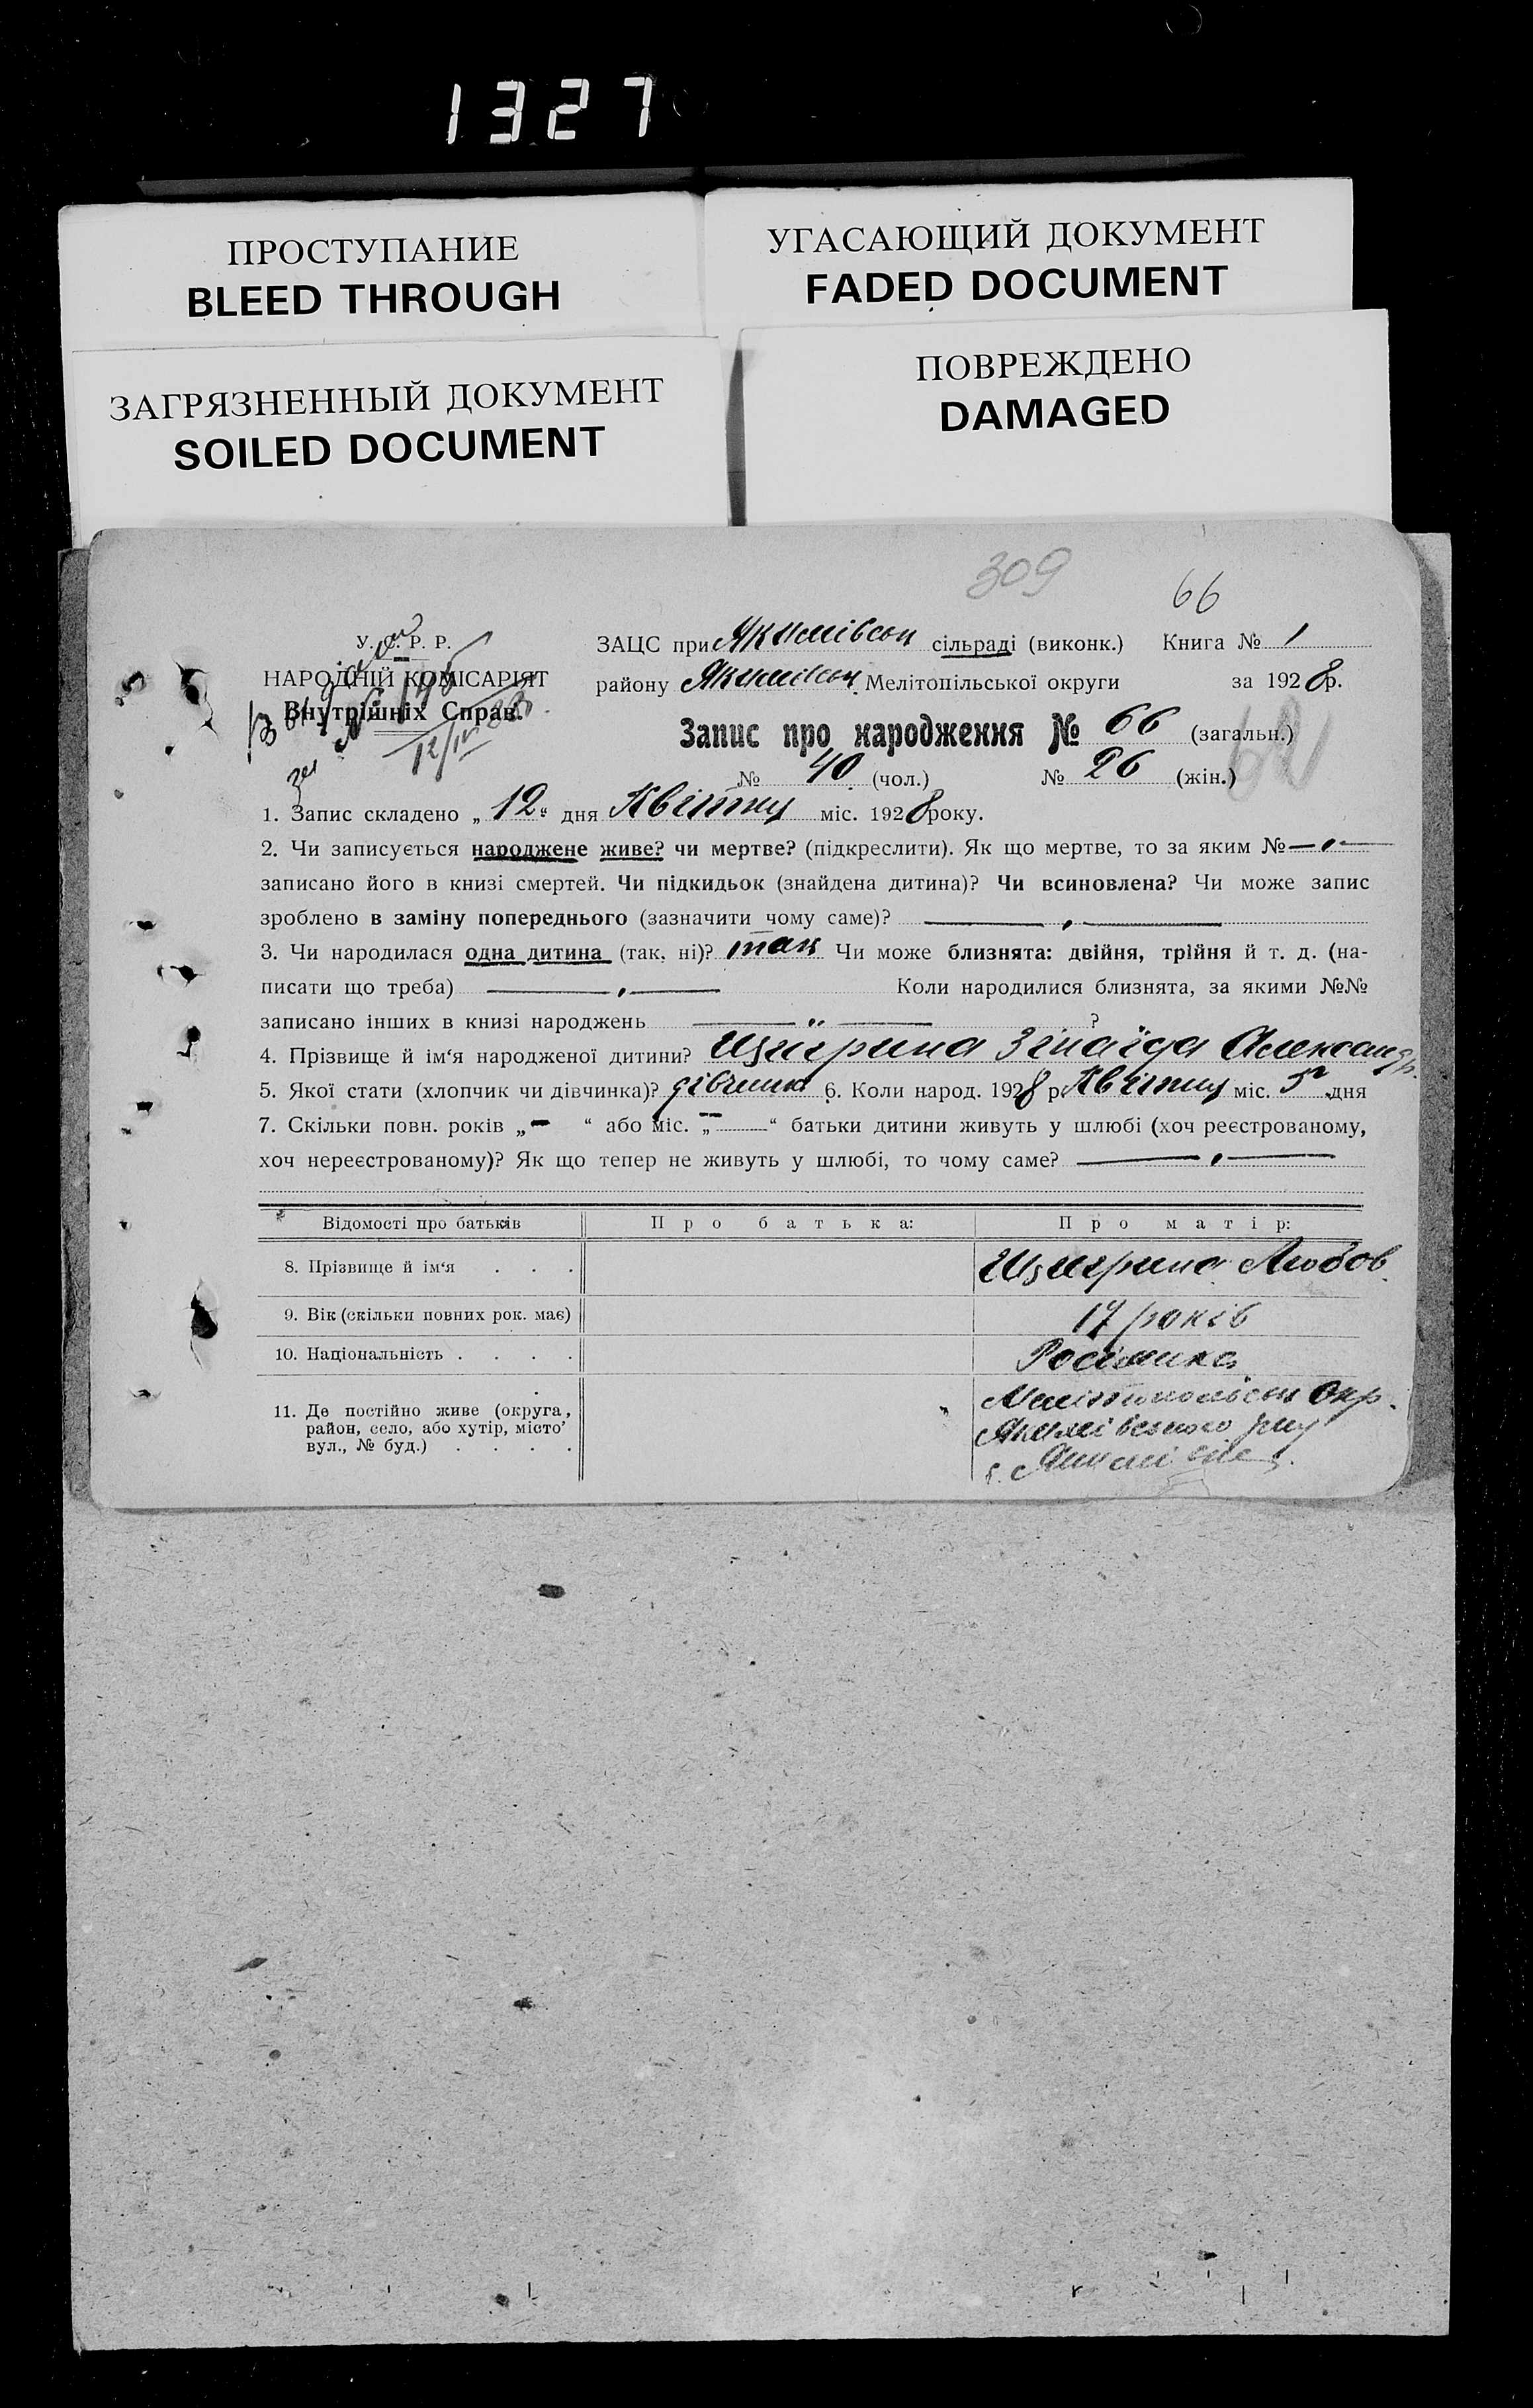 1327
ПРОСТУПАНИЕ
BLEED THROUGH
УГАСАЮЩИЙ ДОКУМЕНТ
FADED DOCUMENT
ЗАГРЯЗНЕННЫЙ ДОКУМЕНТ
SOILED DOCUMENT
ПОВРЕЖДЕНО
DAMAGED
309
66
У. С. Р. Р.
НАРОДНІЙ КОМІСАРІЯТ
Внутрішніх Справ.
12/IV
ЗАЦС при Якимівськ сільраді (виконк.) Книга № 1
району Якимівськ Мелітопільської округи за 1928 р.
Запис про народження № 66 (загальн.)
№ 40 (чол.) № 26 (жін.)
1. Запис складено „ 12 “ дня Квітня міс. 1928 року.
2. Чи записується народжене живе? чи мертве? (підкреслити). Як що мертве, то за яким №
записано його в книзі смертей. Чи підкидьок (знайдена дитина)? Чи всиновлена? Чи може запис
зроблено в заміну попереднього (зазначити чому саме)?
3. Чи народилася одна дитина (так, ні)? так Чи може близнята: двійня, трійня й т. д. (на-
писати що треба) Коли народилися близнята, за якими №№
записано інших в книзі народжень ?
4. Прізвище й ім‘я народженої дитини? Зінаїда Александр.
5. Якої стати (хлопчик чи дівчинка)? дівчинка 6. Коли народ. 1928 р. Квітня міс. 5 дня
7. Скільки повн. років „ – “ або міс. „ – “ батьки дитини живуть у шлюбі (хоч реєстрованому,
хоч нереєстрованому)? Як що тепер не живуть у шлюбі, то чому саме?
Відомості про батьків Про батька: Про матір:
8. Прізвище й ім‘я . . . Любов
9. Вік (скільки повних рок. має) 17 років
10. Національність . . . .
11. Де постійно живе (округа,
район, село, або хутір, місто’
вул., № буд.) . . . .
Окр.
Якимівського р-ну